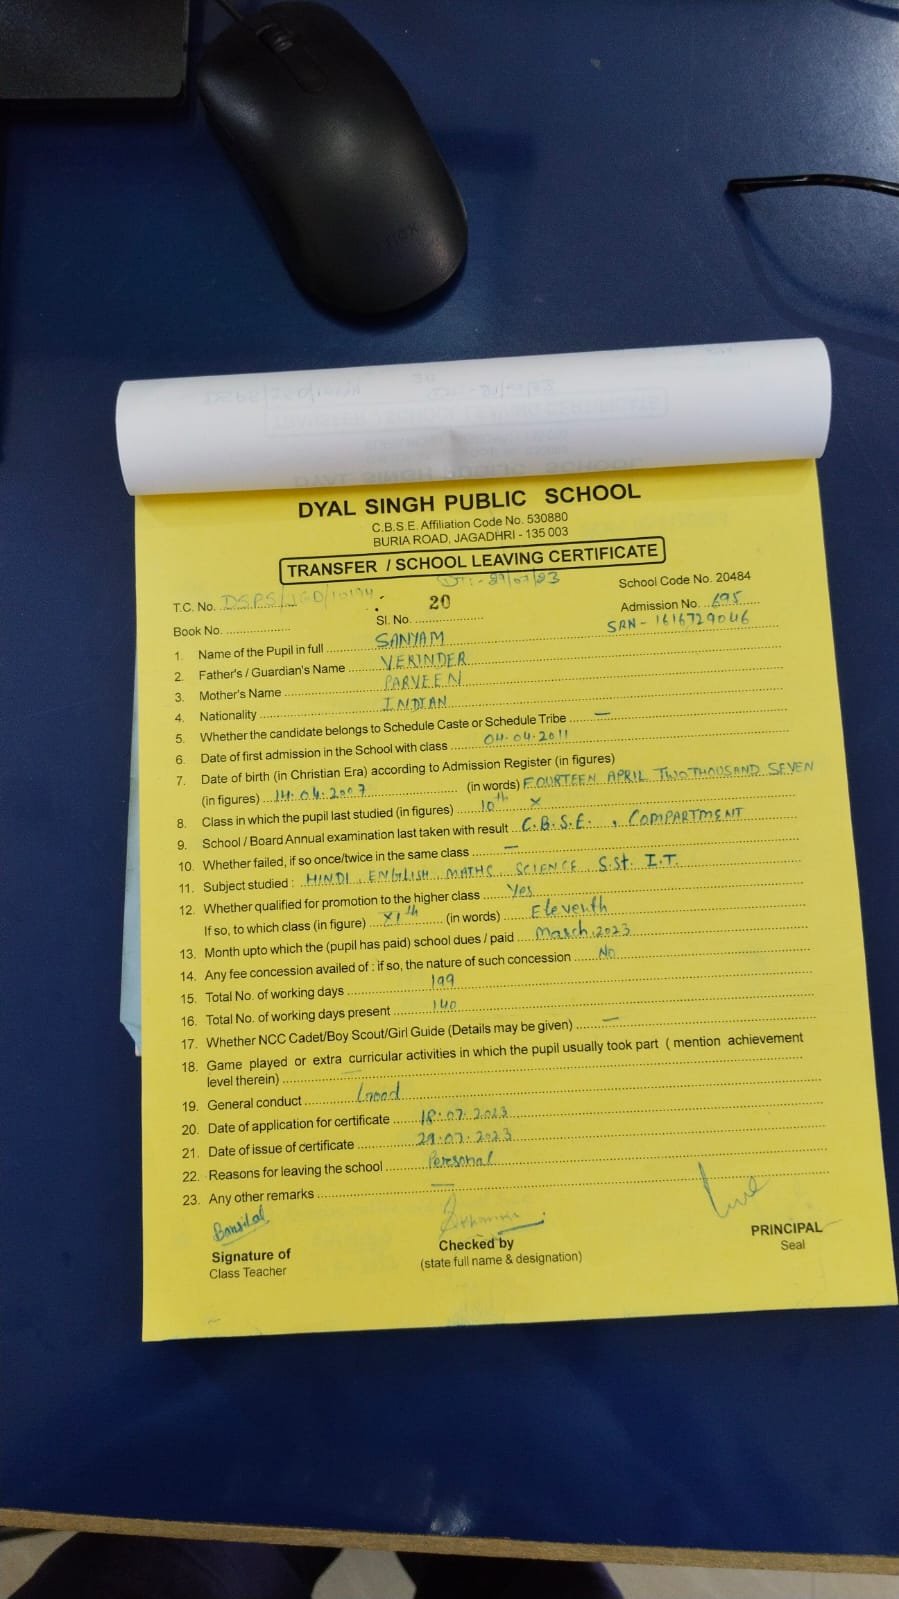 DYAL SINGH PUBLIC SCHOOL
C.B.S.E. Affiliation Code No. 530880
BURIA ROAD, JAGADHRI - 135 003
TRANSFER / SCHOOL LEAVING CERTIFICATE
School Code No. 20484
T.C. No. DSPS/JGD/10194
Book No. Sl. No. 20 Admission No. 695
SRN - 1616729046
1. Name of the Pupil in full SANYAM
2. Father's / Guardian's Name VERINDER
3. Mother's Name PARVEEN
4. Nationality INDIAN
5. Whether the candidate belongs to Schedule Caste or Schedule Tribe —
6. Date of first admission in the School with class 04.04.2011
7. Date of birth (in Christian Era) according to Admission Register (in figures)
(in figures) 14.04.2007 (in words) FOURTEEN APRIL TWO THOUSAND SEVEN
8. Class in which the pupil last studied (in figures) 10th X
9. School / Board Annual examination last taken with result C.B.S.E. , COMPARTMENT
10. Whether failed, if so once/twice in the same class —
11. Subject studied : HINDI, ENGLISH, MATHS, SCIENCE S.St. I.T.
12. Whether qualified for promotion to the higher class Yes
If so, to which class (in figure) XIth (in words) Eleventh
13. Month upto which the (pupil has paid) school dues / paid March, 2023
14. Any fee concession availed of : if so, the nature of such concession No
15. Total No. of working days 199
16. Total No. of working days present 140
17. Whether NCC Cadet/Boy Scout/Girl Guide (Details may be given) —
18. Game played or extra curricular activities in which the pupil usually took part ( mention achievement
level therein) —
19. General conduct Good
20. Date of application for certificate 18.07.2023
21. Date of issue of certificate 29.07.2023
22. Reasons for leaving the school Personal
23. Any other remarks —
Bansilal
Signature of Checked by PRINCIPAL
Class Teacher (state full name & designation) Seal